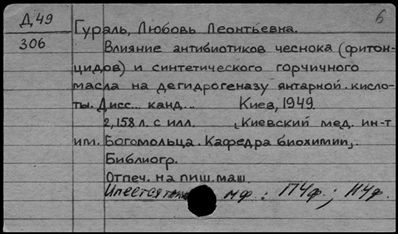 Д 49
306
6
Гураль, Любовь Леонтьевна.
Влияние антибиотиков чеснока (фитон-
цидов) и синтетического горчичного
масла на дегидрогеназу янтарной кисло-
ты. Дисс... канд... Киев, 1949.
2,158 л. с илл. (Киевский мед. ин-т
им. Богомольца. Кафедра биохимии).
Библиогр.
Отпеч. на пиш. маш.
Имеется мф: ПЧф; НЧф.